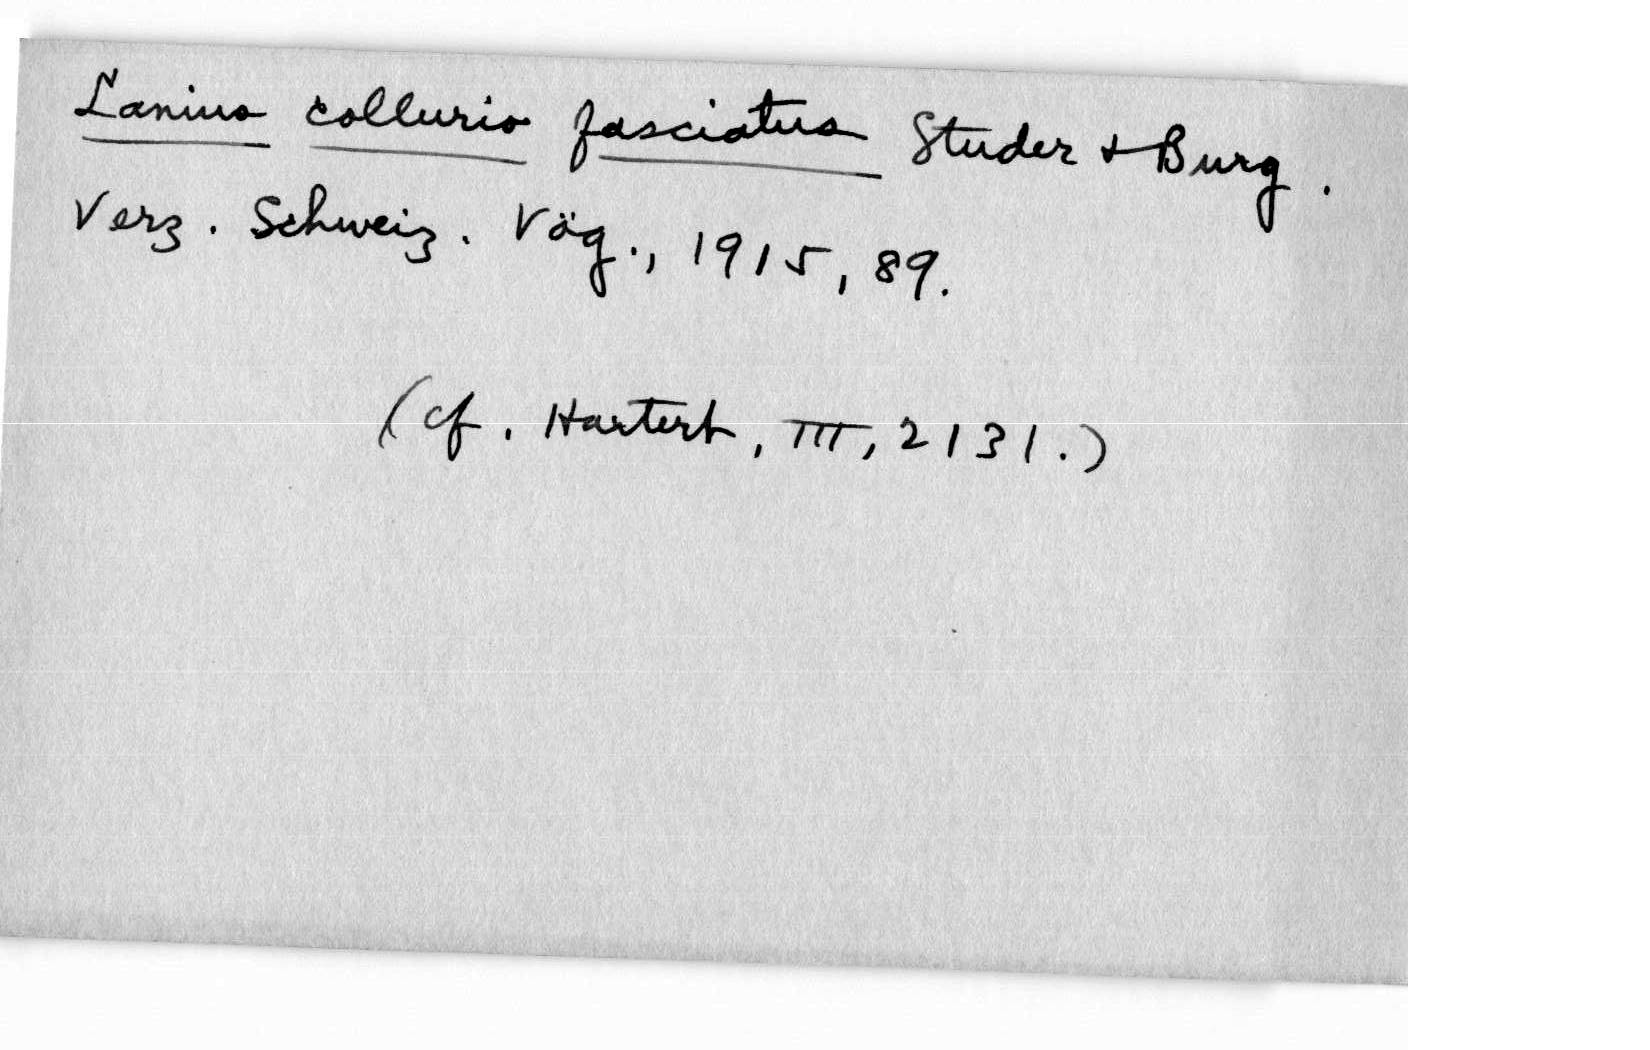 Lanius collurio fasciatus Studer + Burg.
Verz. Schweiz. Vög., 1915, 89.
(cf. Hartert, III, 2131.)